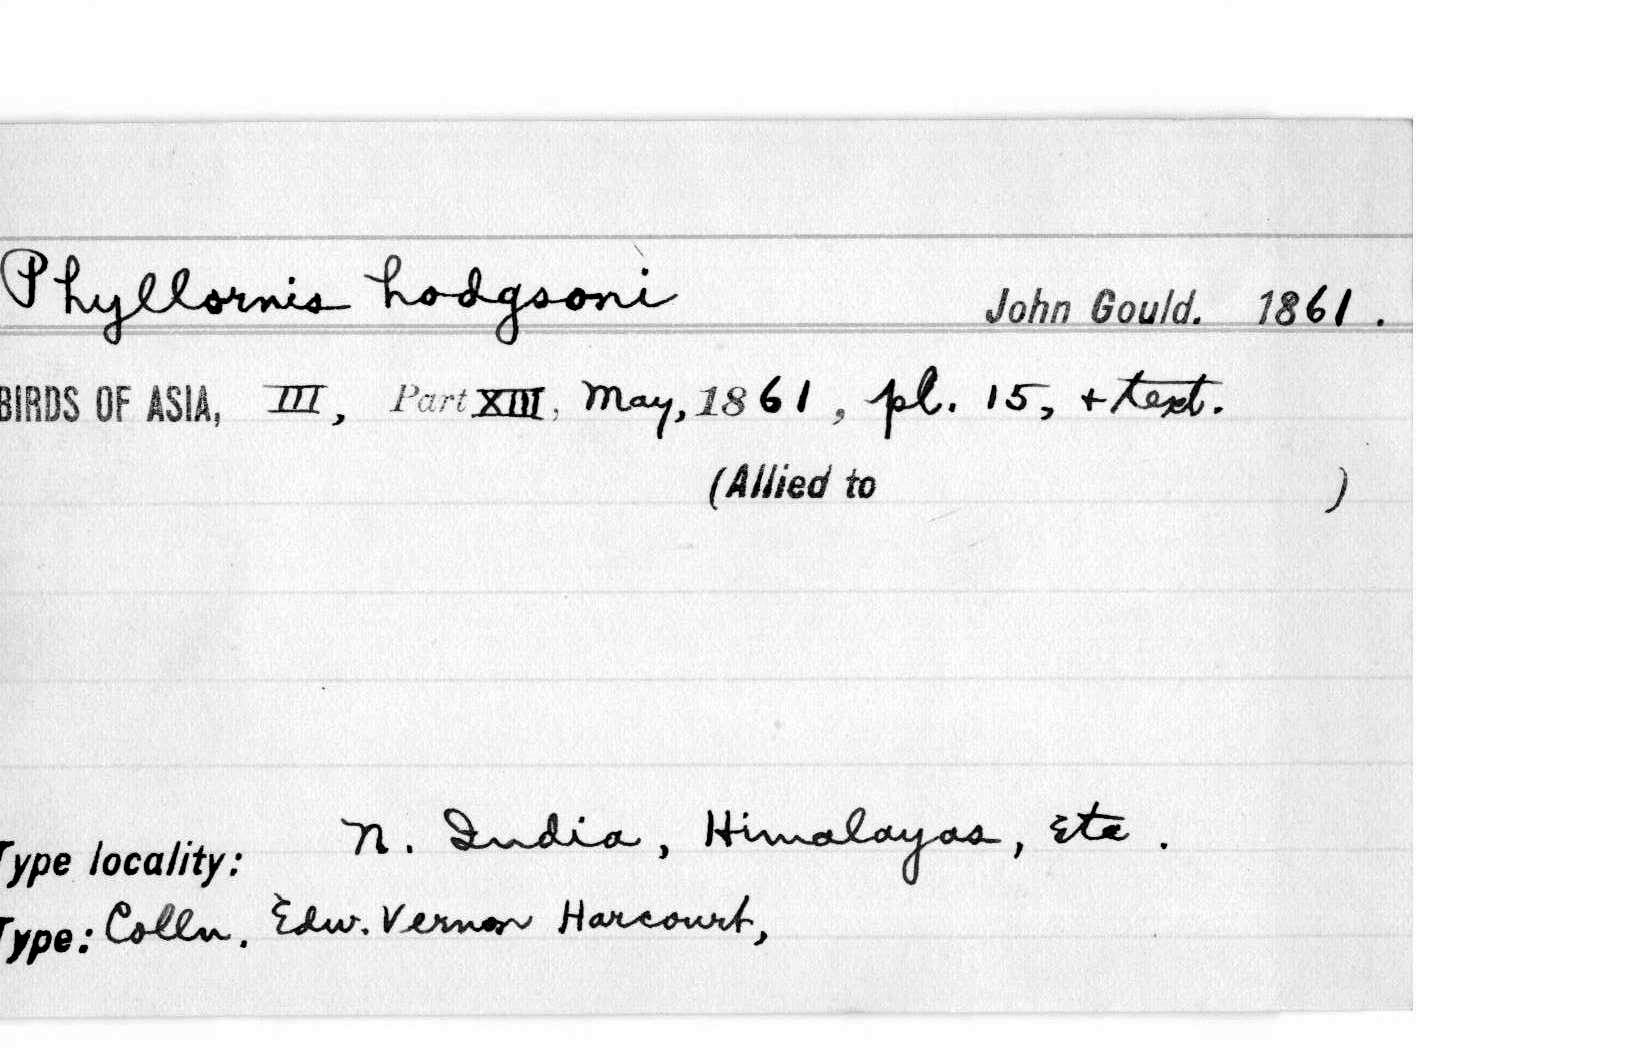 Phyllornis hodgsoni John Gould. 1861.
BIRDS OF ASIA, III, Part XIII, May, 1861, pl. 15, + text.
(Allied to )
Type locality: N. India, Himalayas, Etc.
Type: Colln. Edw. Vernon Harcourt,